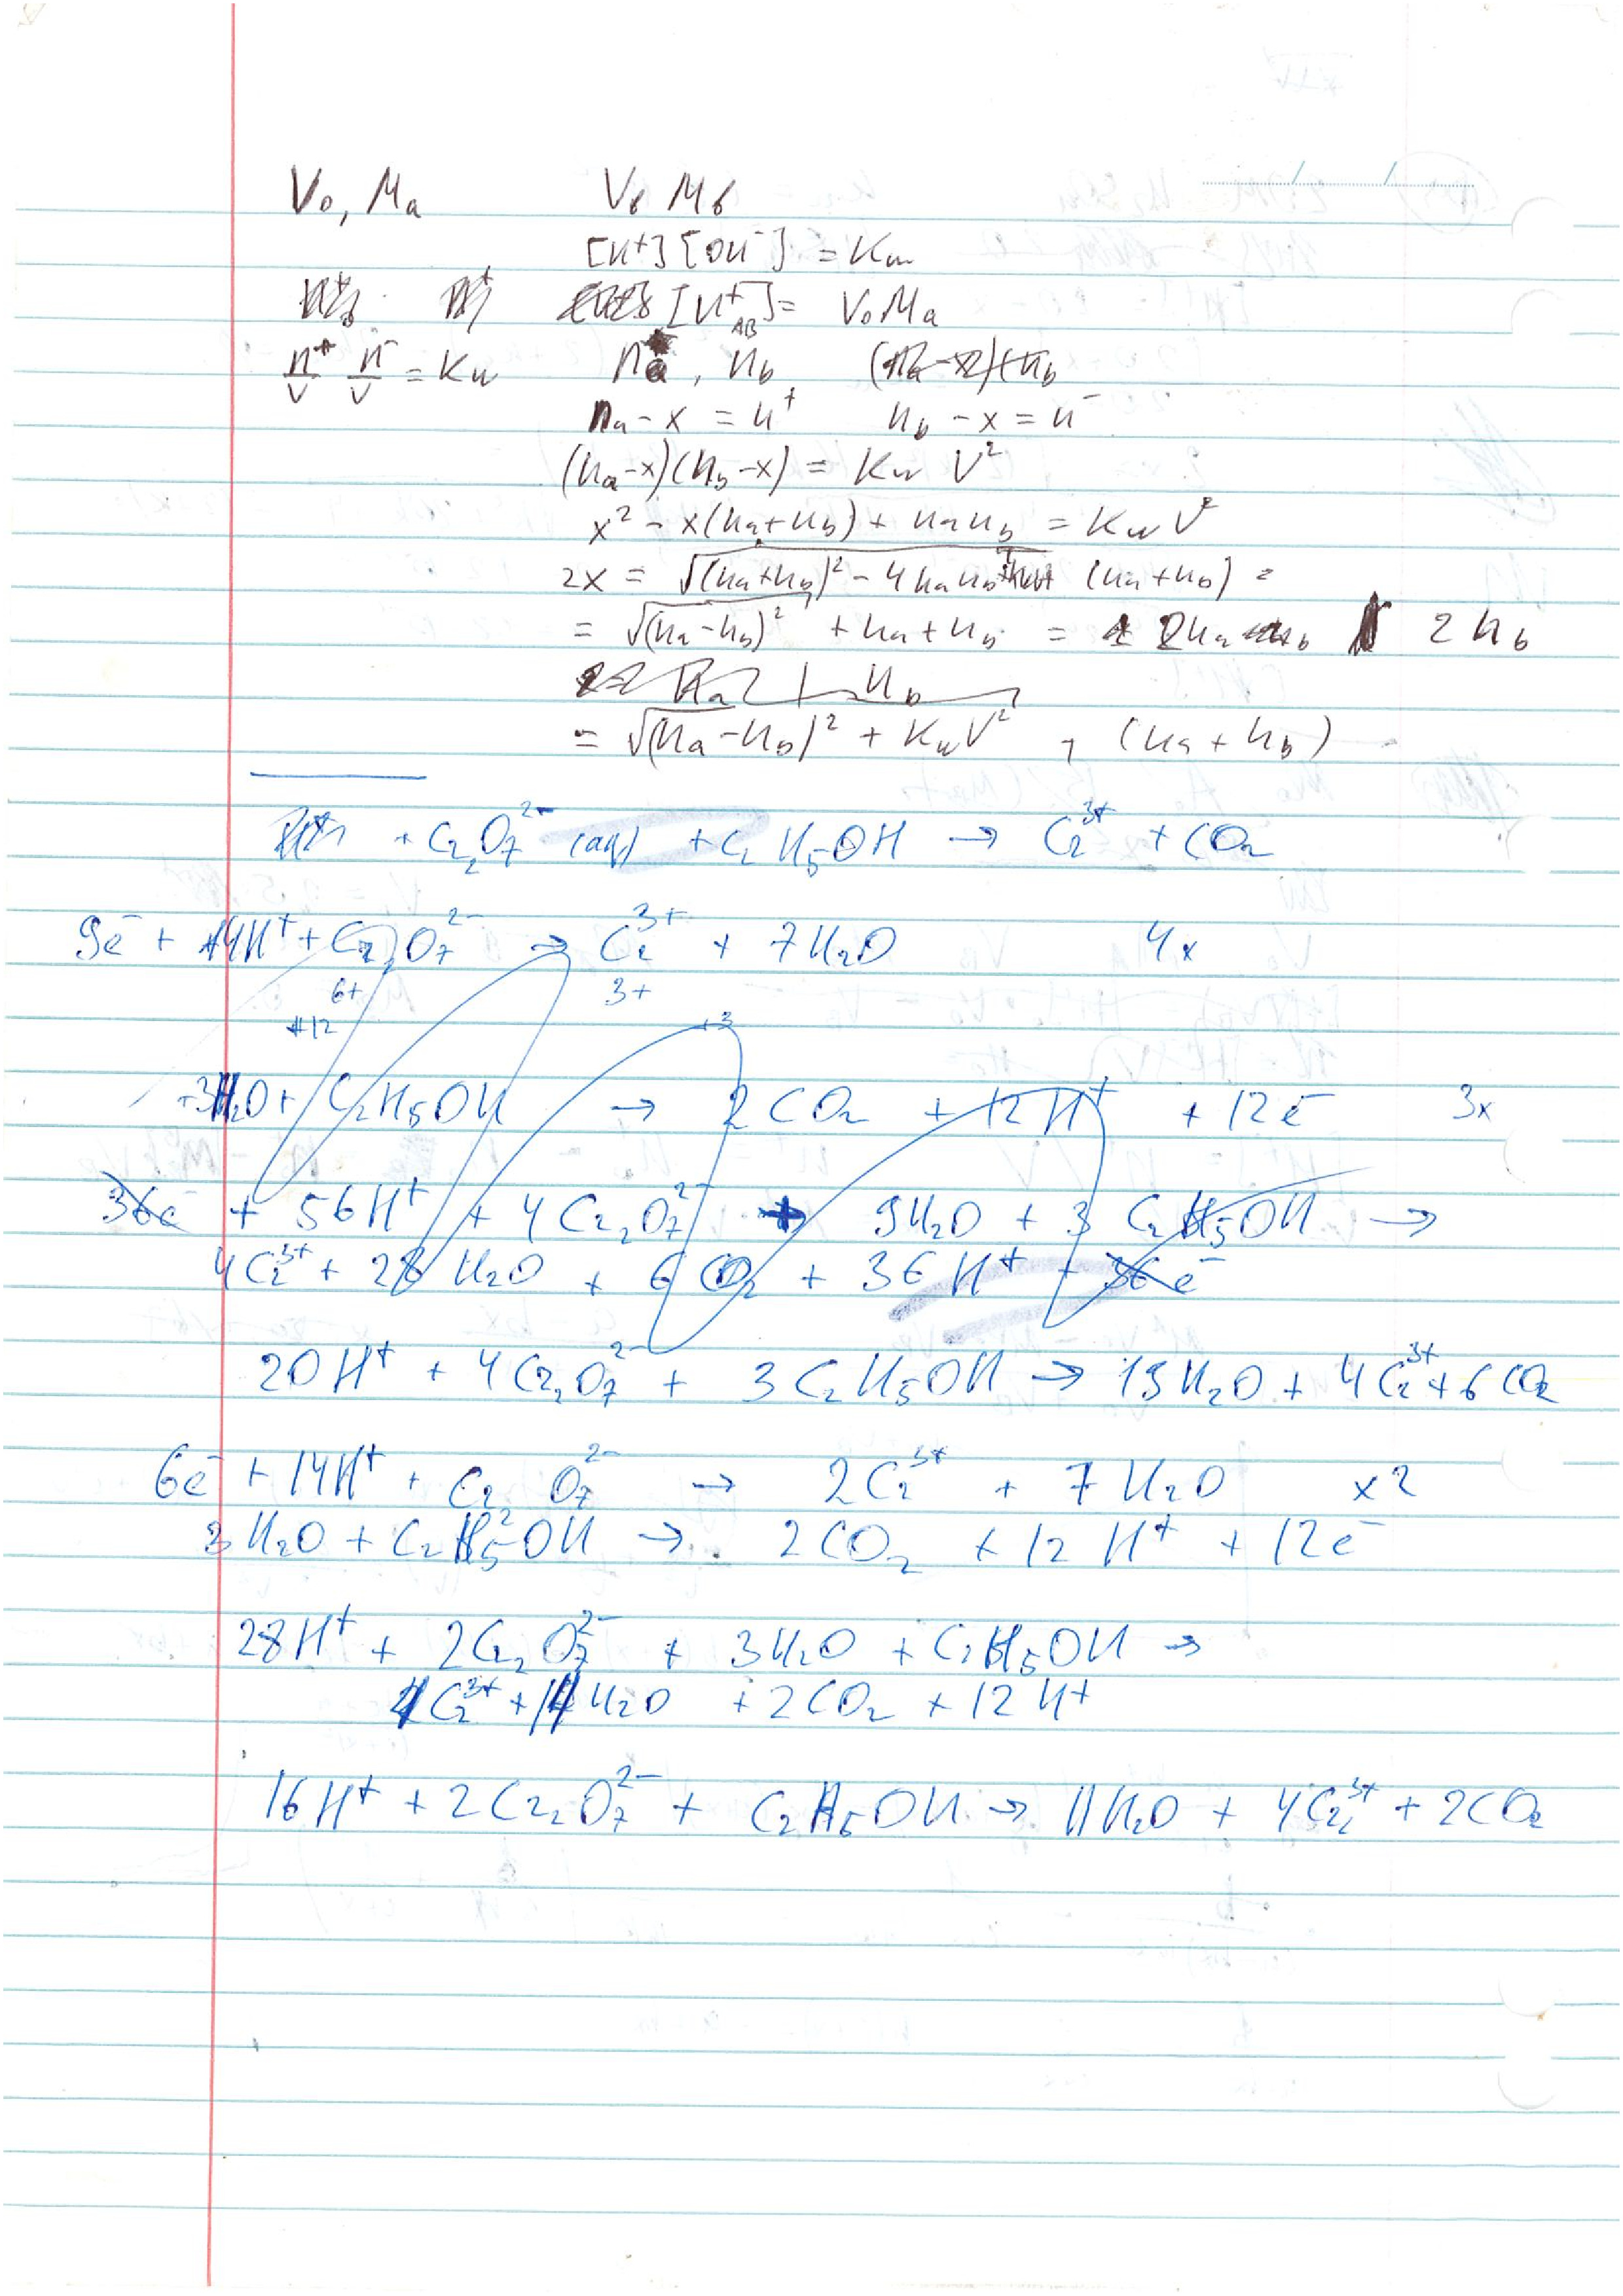 V₀, Mₐ V_b M_b
[H⁺][OH⁻] = K_w
[H⁺_AB] = V₀Mₐ
n⁺/V n⁻/V = K_w nₐ, n_b
nₐ - x = n⁺ n_b - x = n⁻
(nₐ-x)(n_b-x) = K_w V²
x² - x(nₐ+n_b) + nₐn_b = K_w V²
2x = √(nₐ+n_b)² - 4nₐn_b (nₐ+n_b) =
= √(nₐ-n_b)² + nₐ + n_b = 2nₐ 2n_b
= √(nₐ-n_b)² + K_w V² + (nₐ + n_b)
+ Cr₂O₇²⁻ (aq) + C₂H₅OH → Cr³⁺ + CO₂
9e⁻ + 14H⁺ + Cr₂O₇²⁻ → Cr³⁺ + 7H₂O 4x
6+ 3+
12 +3
+3H₂O + C₂H₅OH → 2CO₂ + 12H⁺ + 12e⁻ 3x
36e⁻ + 56H⁺ + 4Cr₂O₇²⁻ + 9H₂O + 3C₂H₅OH →
4Cr³⁺ + 28H₂O + 6CO₂ + 36H⁺ + 36e⁻
20H⁺ + 4Cr₂O₇²⁻ + 3C₂H₅OH → 19H₂O + 4Cr³⁺ + 6CO₂
6e⁻ + 14H⁺ + Cr₂O₇²⁻ → 2Cr³⁺ + 7H₂O x2
3H₂O + C₂H₅OH → 2CO₂ + 12H⁺ + 12e⁻
28H⁺ + 2Cr₂O₇²⁻ + 3H₂O + C₂H₅OH →
4Cr³⁺ + 14H₂O + 2CO₂ + 12H⁺
16H⁺ + 2Cr₂O₇²⁻ + C₂H₅OH → 11H₂O + 4Cr³⁺ + 2CO₂